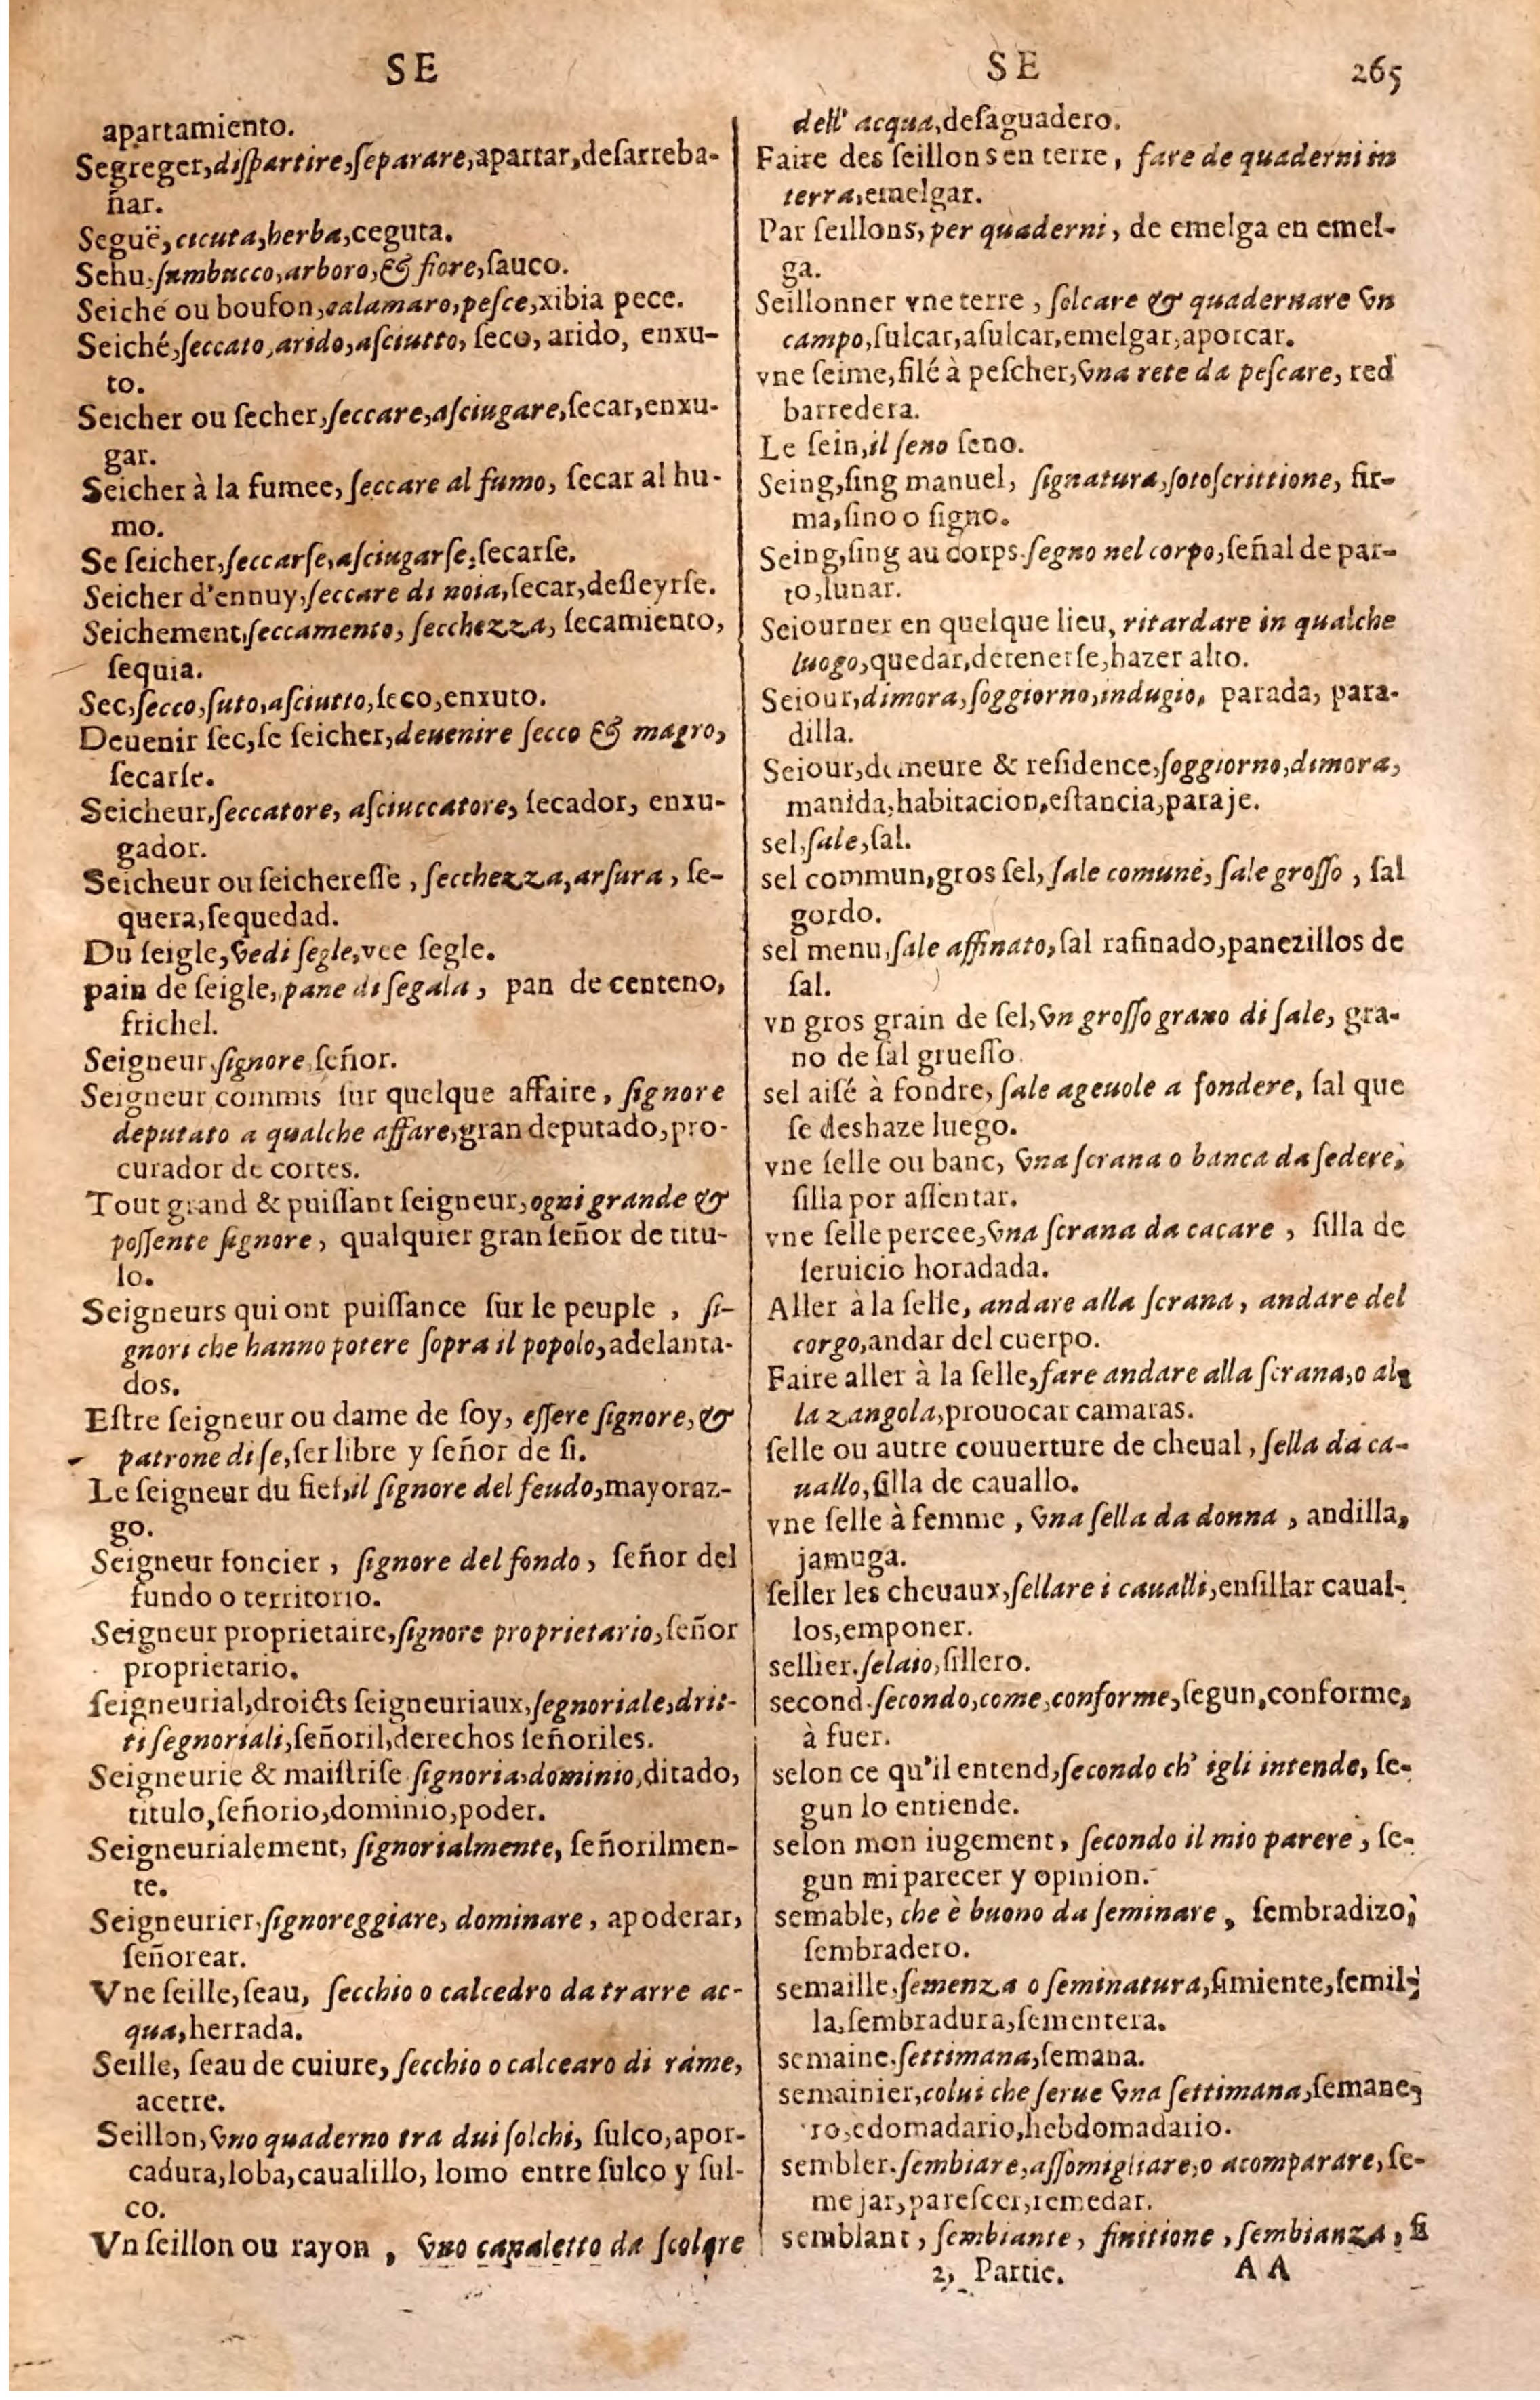 SE
SE
265
apartamiento.
Segreger, diſpartire, ſeparare, apartar, deſarreba-
ñar.
Seguë, cicuta, herba, ceguta.
Sehu. ſambucco, arboro, & fiore, ſauco.
Seiche ou boufon, calamaro, peſce, xibia pece.
Seiché, ſeccato, arido, aſciutto, ſeco, arido, enxu-
to.
Seicher ou ſecher, ſeccare, aſciugare, ſecar, enxu-
gar.
Seicher à la fumee, ſeccare al fumo, ſecar al hu-
mo.
Se ſeicher, ſeccarſe, aſciugarſe, ſecarſe.
Seicher d'ennuy, ſeccare di noia, ſecar, deſleyrſe.
Seichement, ſeccamento, ſecchezza, ſecamiento,
ſequia.
Sec, ſecco, ſuto, aſciutto, ſeco, enxuto.
Deuenir ſec, ſe ſeicher, deuenire ſecco & magro,
ſecarſe.
Seicheur, ſeccatore, aſciuccatore, ſecador, enxu-
gador.
Seicheur ou ſeichereſſe, ſecchezza, arſura, ſe-
quera, ſequedad.
Du ſeigle, vedi ſegle, vee ſegle.
pain de ſeigle, pane di ſegala, pan de centeno,
frichel.
Seigneur, ſignore, ſeñor.
Seigneur commis ſur quelque affaire, ſignore
deputato a qualche affare, gran deputado, pro-
curador de cortes.
Tout grand & puiſſant ſeigneur, ogni grande &
poſſente ſignore, qualquier gran ſeñor de titu-
lo.
Seigneurs qui ont puiſſance ſur le peuple, ſi-
gnori che hanno potere ſopra il popolo, adelanta-
dos.
Eſtre ſeigneur ou dame de ſoy, eſſere ſignore, &
patrone di ſe, ſer libre y ſeñor de ſi.
Le ſeigneur du fief, il ſignore del feudo, mayoraz-
go.
Seigneur foncier, ſignore del fondo, ſeñor del
fundo o territorio.
Seigneur proprietaire, ſignore proprietario, ſeñor
proprietario.
ſeigneurial, droicts ſeigneuriaux, ſegnoriale, drit-
ti ſegnoriali, ſeñoril, derechos ſeñoriles.
Seigneurie & maiſtriſe ſignoria, dominio, ditado,
titulo, ſeñorio, dominio, poder.
Seigneurialement, ſignorialmente, ſeñorilmen-
te.
Seigneurier, ſignoreggiare, dominare, apoderar,
ſeñorear.
Vne ſeille, ſeau, ſecchio o calcedro da trarre ac-
qua, herrada.
Seille, ſeau de cuiure, ſecchio o calcearo di rame,
acetre.
Seillon, vno quaderno tra dui ſolchi, ſulco, apor-
cadura, loba, caualillo, lomo entre ſulco y ſul-
co.
Vn ſeillon ou rayon, vno canaletto da ſcolare
dell' acqua, deſaguadero.
Faire des ſeillons en terre, fare de quaderni in
terra, emelgar.
Par ſeillons, per quaderni, de emelga en emel-
ga.
Seillonner vne terre, ſolcare & quadernare vn
campo, ſulcar, aſulcar, emelgar, aporcar.
vne ſeime, filé à peſcher, vna rete da peſcare, red
barredera.
Le ſein, il ſeno ſeno.
Seing, ſing manuel, ſignatura, ſotoſcrittione, fir-
ma, ſino o ſigno.
Seing, ſing au corps. ſegno nel corpo, ſeñal de par-
to, lunar.
Seiourner en quelque lieu, ritardare in qualche
luogo, quedar, detenerſe, hazer alto.
Seiour, dimora, ſoggiorno, indugio, parada, para-
dilla.
Seiour, demeure & reſidence, ſoggiorno, dimora,
manida, habitacion, eſtancia, paraje.
sel, ſale, ſal.
sel commun, gros ſel, ſale comune, ſale groſſo, ſal
gordo.
sel menu, ſale affinato, ſal rafinado, panezillos de
ſal.
vn gros grain de ſel, vn groſſo grano di ſale, gra-
no de ſal grueſſo.
sel aiſé à fondre, ſale ageuole a fondere, ſal que
ſe deshaze luego.
vne ſelle ou banc, vna ſcrana o banca da ſedere,
ſilla por aſſentar.
vne ſelle percee, vna ſcrana da cacare, ſilla de
ſeruicio horadada.
Aller à la ſelle, andare alla ſcrana, andare del
corgo, andar del cuerpo.
Faire aller à la ſelle, fare andare alla ſcrana, o al-
la zangola, prouocar camaras.
ſelle ou autre couuerture de cheual, ſella da ca-
uallo, ſilla de cauallo.
vne ſelle à femme, vna ſella da donna, andilla,
jamuga.
ſeller les cheuaux, ſellare i caualli, enſillar caual-
los, emponer.
sellier. ſelaio, ſillero.
second. ſecondo, come, conforme, ſegun, conforme,
à fuer.
selon ce qu'il entend, ſecondo ch' igli intende, ſe-
gun lo entiende.
selon mon iugement, ſecondo il mio parere, ſe-
gun mi parecer y opinion.
semable, che è buono da ſeminare, ſembradizo,
ſembradero.
semaille, ſemenza o ſeminatura, ſimiente, ſemil-
la, ſembradura, ſementera.
semaine. ſettimana, ſemana.
semainier, colui che ſerue vna ſettimana, ſemane-
ro, edomadario, hebdomadario.
sembler. ſembiare, aſſomigliare, o acomparare, ſe-
mejar, pareſcer, remedar.
semblant, ſembiante, finitione, ſembianza, fi
2, Partie.
A A